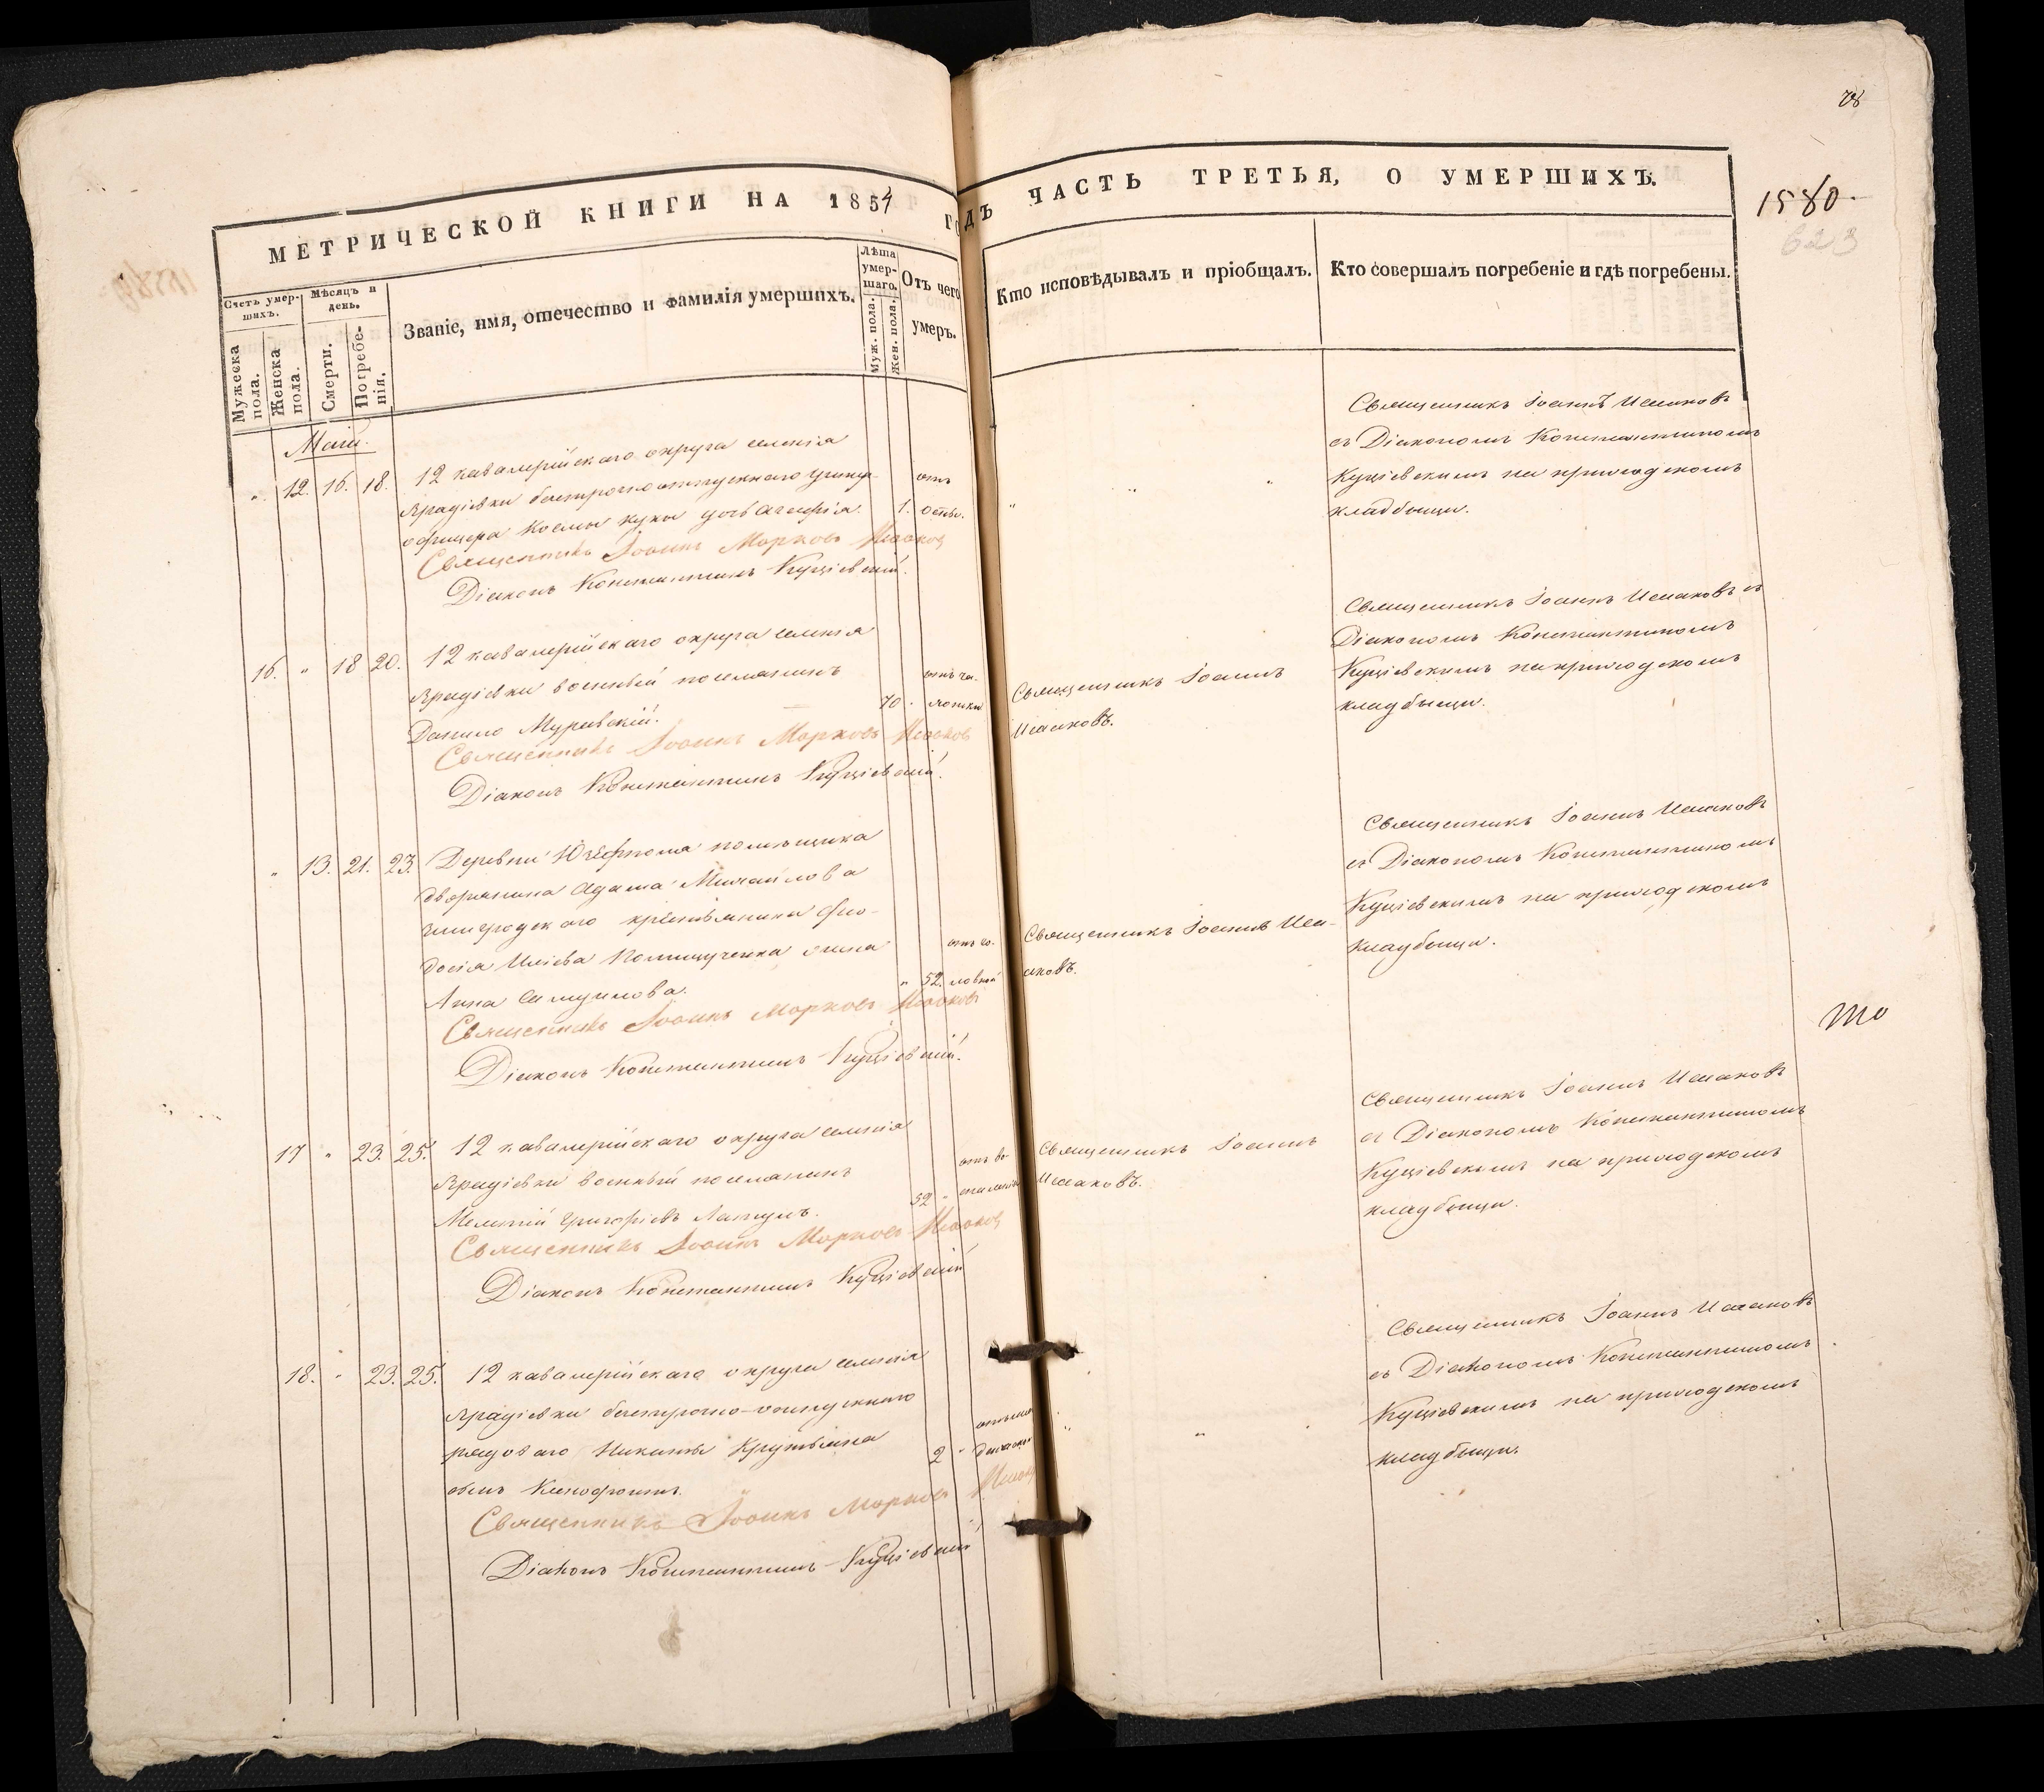 МЕТРИЧЕСКОЙ КНИГИ НА 1854 ГОДЪ ЧАСТЬ ТРЕТЬЯ, О УМЕРШИХЪ.
1580.
623
Счетъ умершихъ.
Мужеска пола.
Женска пола.
Мѣсяцъ и день.
Смерти.
Погребенія.
Званіе, имя, отечество и фамилія умершихъ.
Лѣта умершаго.
Муж. пола.
Жен. пола.
Отъ чего умеръ.
Кто исповѣдывалъ и пріобщалъ.
Кто совершалъ погребеніе и гдѣ погребены.
Маій.
" 12. 16. 18.
12 кавалерійскаго округа селенія
безсрочноотпускнаго унтеръ
офицера Космы дочь
1. отъ оспы.
Священникъ Іоаннъ Марковъ Исаковъ
Діаконъ Константинъ Куціевскій.
Священникъ Іоаннъ Исааковъ
съ Діакономъ Константиномъ
Куціевскимъ на приходскомъ
кладбищи.
16. " 18 20.
12 кавалерійскаго округа селенія
военный поселянинъ
Данило Муравскій.
70.
Священникъ Іоаннъ Марковъ Исаковъ
Діаконъ Константинъ Куціевскій.
Священникъ Іоаннъ
Исааковъ.
Священникъ Іоаннъ Исааковъ съ
Діакономъ Константиномъ
Куціевскимъ на приходскомъ
кладбищи.
" 13. 21. 23.
Деревни помѣщика
дворянина Адама Михайлова
крестьянина Фео-
досія жена
Анна
" 52. отъ головной
Священникъ Іоаннъ Марковъ Исаковъ
Діаконъ Константинъ Куціевскій.
Священникъ Іоаннъ Иса-
аковъ.
Священникъ Іоаннъ Исааковъ
съ Діакономъ Константиномъ
Куціевскимъ на приходскомъ
кладбищи.
17 " 23. 25.
12 кавалерійскаго округа селенія
военный поселянинъ
Мелетій Григоріевъ
52 " отъ воспаленія
Священникъ Іоаннъ Марковъ Исаковъ
Діаконъ Константинъ Куціевскій
Священникъ Іоаннъ
Исааковъ.
Священникъ Іоаннъ Исааковъ
съ Діакономъ Константиномъ
Куціевскимъ на приходскомъ
кладбищи.
18. " 23. 25.
12 кавалерійскаго округа селенія
безсрочно-отпускнаго
рядоваго Никиты
сынъ Ксенофонтъ.
2 "
Священникъ Іоаннъ Марковъ
Діаконъ Константинъ Куціевскій
Священникъ Іоаннъ Исааковъ
съ Діакономъ Константиномъ
Куціевскимъ на приходскомъ
кладбищи.